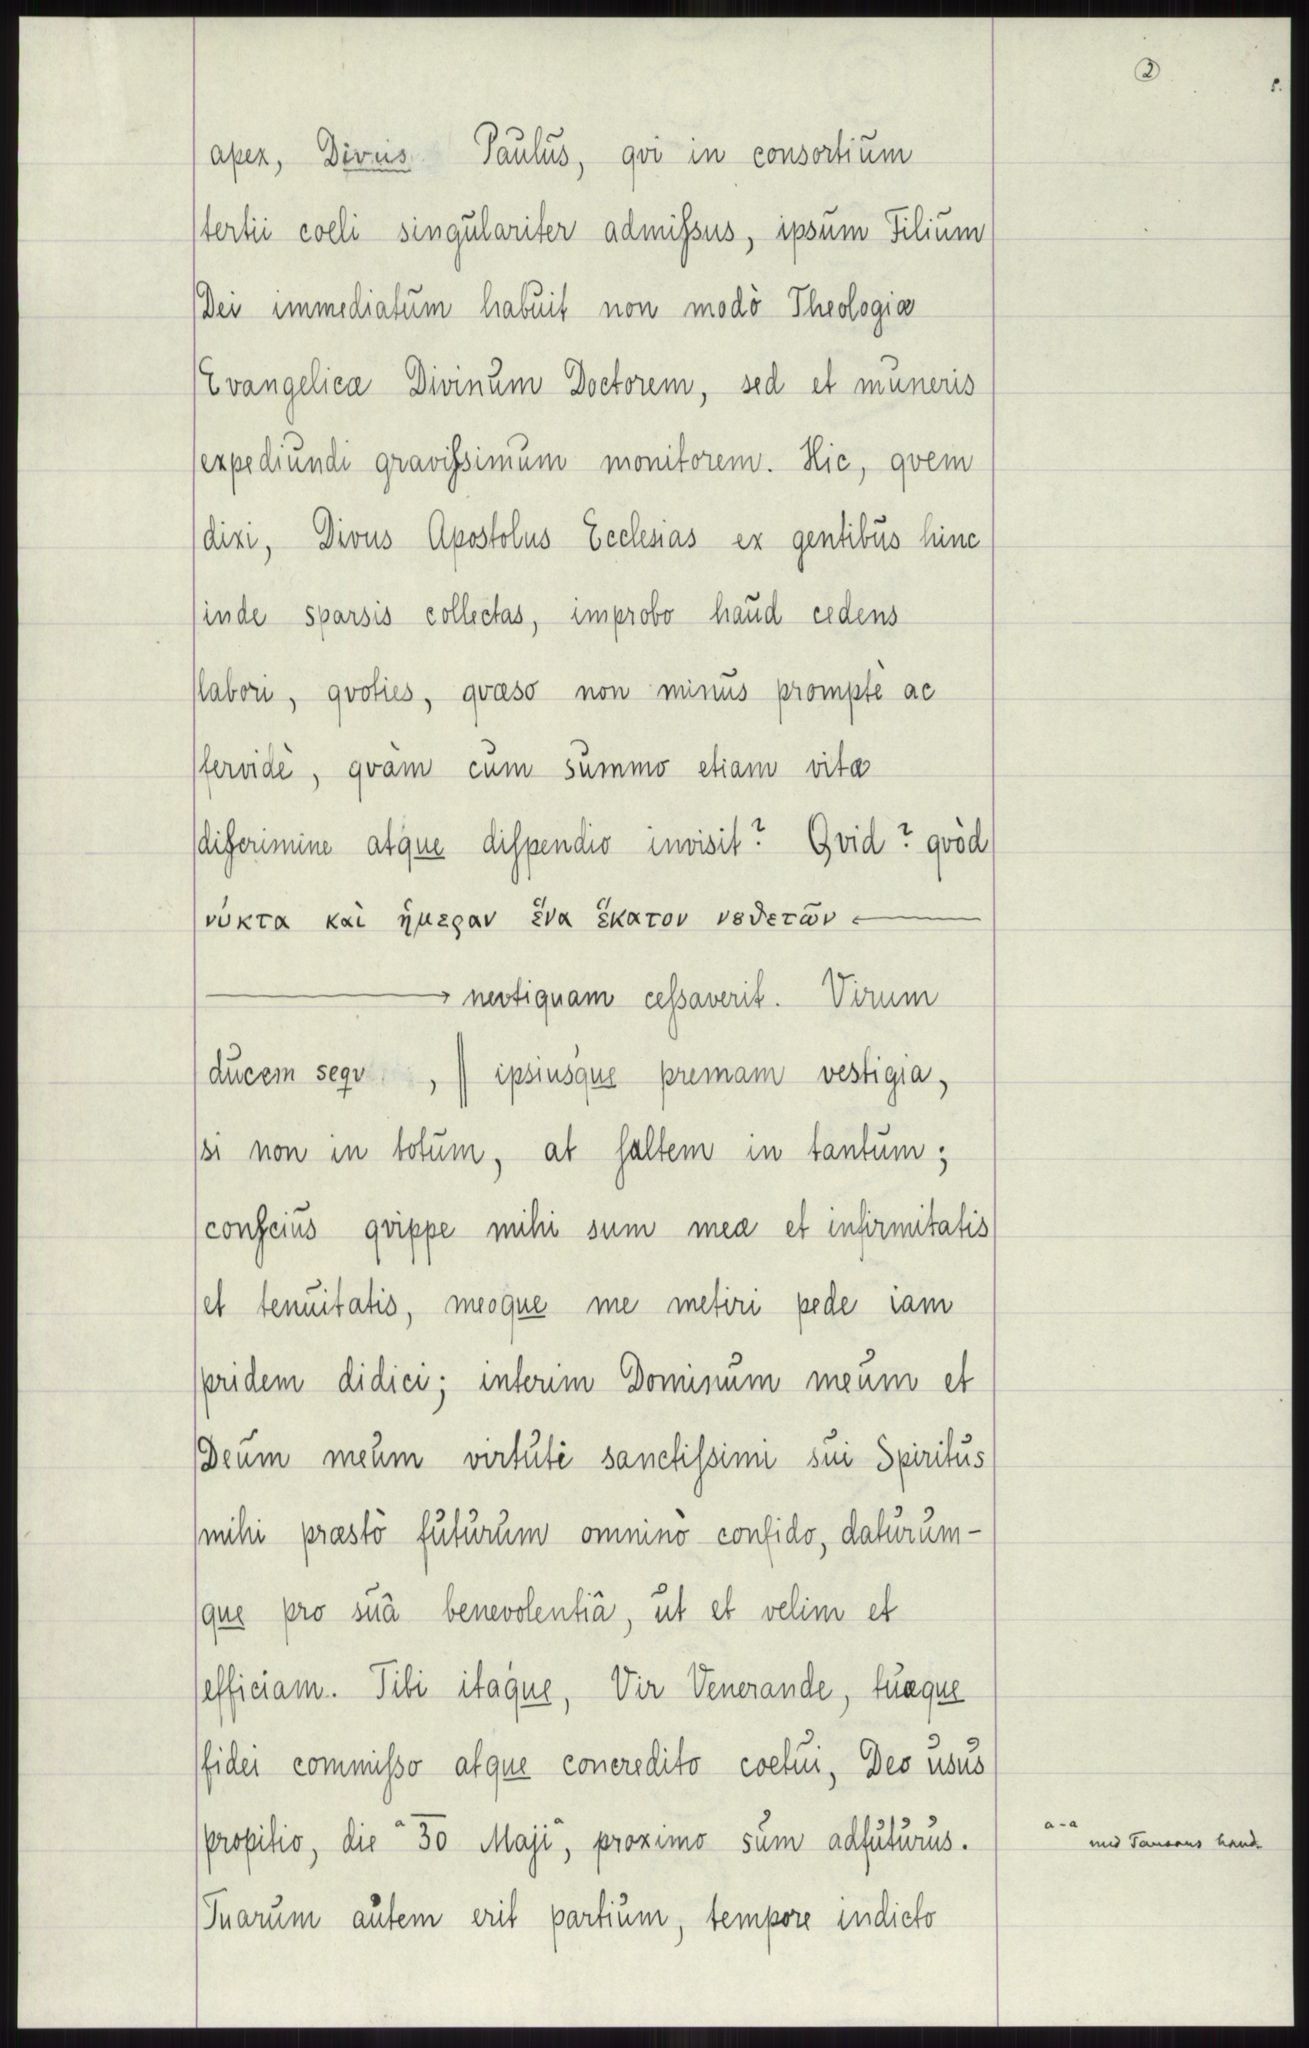 2
apex, Divus Paulus, qvi in consortium
tertii coeli singulariter admiſsus, ipsum Filium
Dei immediatum habuit non modò Theologiæ
Evangelicæ Divinum Doctorem, sed et muneris
expediundi graviſsimum monitorem. Hic, qvem
dixi, Divus Apostolus Ecclesias ex gentibus hinc
inde sparsis collectas, improbo haud cedens
labori, qvoties, qvæso non minus promptè ac
fervidè, qvàm cum summo etiam vitæ
diſcrimine atque diſpendio invisit? Qvid? qvòd
νύκτα καὶ ἥμεραν ἕνα ἕκατον νȣθετῶν
nevtiquam ceſsaverit. Virum
ducem seqv , || ipsiusque premam vestigia,
si non in totum, at ſaltem in tantum;
conſcius qvippe mihi sum meæ et infirmitatis
et tenuitatis, meoque me metiri pede iam
pridem didici; interim Dominum meum et
Deum meum virtute sanctiſsimi sui Spiritus
mihi præstò futurum omninò confido, daturum-
que pro suâ benevolentiâ, ut et velim et
efficiam. Tibi itaque, Vir Venerande, tuæque
fidei commiſso atque concredito coetui, Deo usus
propitio, die a 30 Maji a, proximo sum adfuturus.
a-a
med hand.
Tuarum autem erit partium, tempore indicto